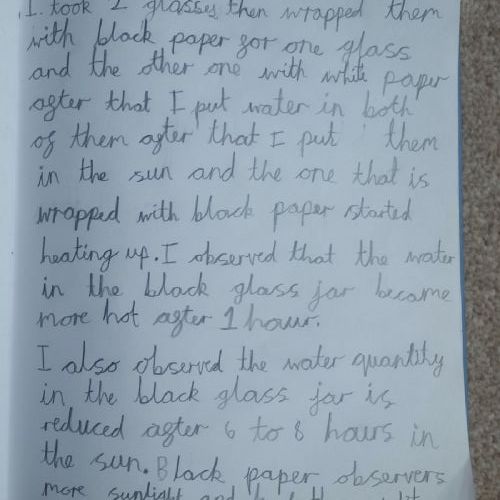 1. took 2 glasses then wrapped them
with black paper for one glass
and the other one with white paper
after that I put water in both
of them after that I put them
in the sun and the one that is
wrapped with black paper started
heating up. I observed that the water
in the black glass jar became
more hot after 1 hour.
I also observed the water quantity
in the black glass jar is
reduced after 6 to 8 hours in
the sun. Black paper observers
more sunlight and